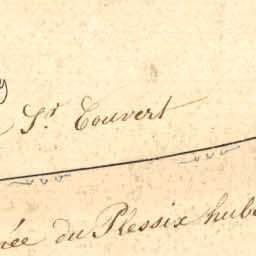 Sr. Touvert
née du Plessix hub